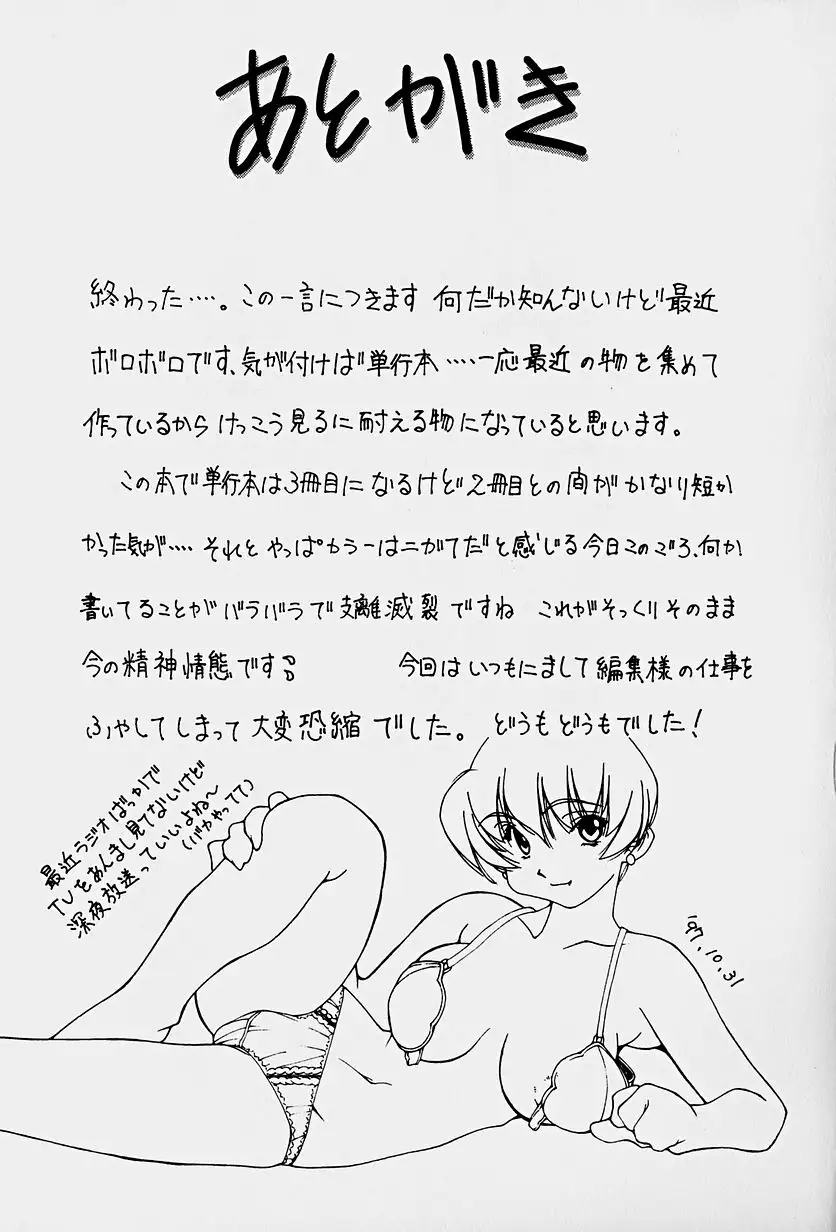 あとがき
終わった‥‥。この一言につきます 何だか知んないけど最近
ボロボロです、気が付けば単行本‥‥一応最近の物を集めて
作っているからけっこう見るに耐える物になっていると思います。
この本で単行本は3冊目になるけど2冊目との間がかなり短か
かった気が‥‥それとやっぱカラーはニがてだと感じる今日このごろ、何か
書いてることがバラバラで支離滅裂ですね これがそっくりそのまま
今の精神情態です 今回はいつもにまして編集様の仕事を
ふやしてしまって大変恐縮でした。どうもどうもでした!
最近ラジオばっかで
TVをあんまし見てないけど
深夜放送っていいよね〜
(バカやってて)
'97.10.31